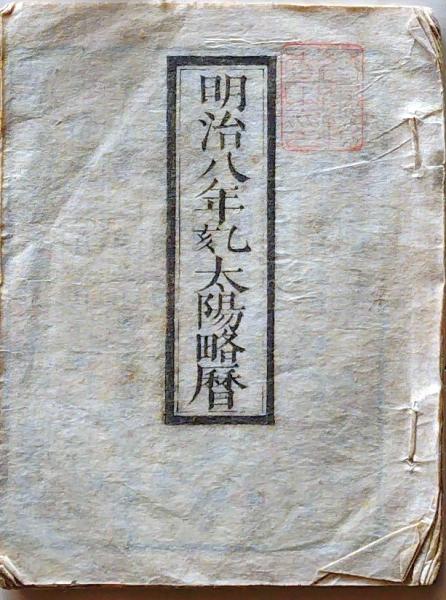 明治八年乙亥太陽略暦